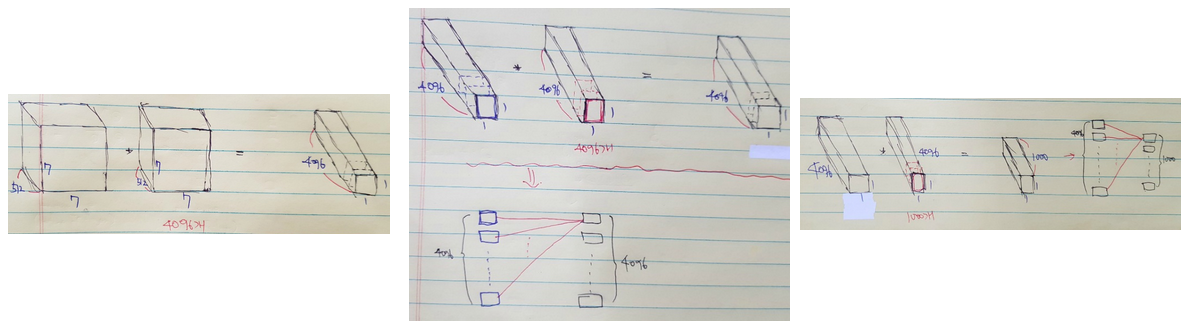 512 7 7 * 512 7 7 = 4096 1 1
4096개
4096 1 1 * 4096 1 1 = 4096 1
4096개
⇓
4096 4096
4096 1 1 * 4096 1 1 = 1000 1 1 → 4096 1000
1000개